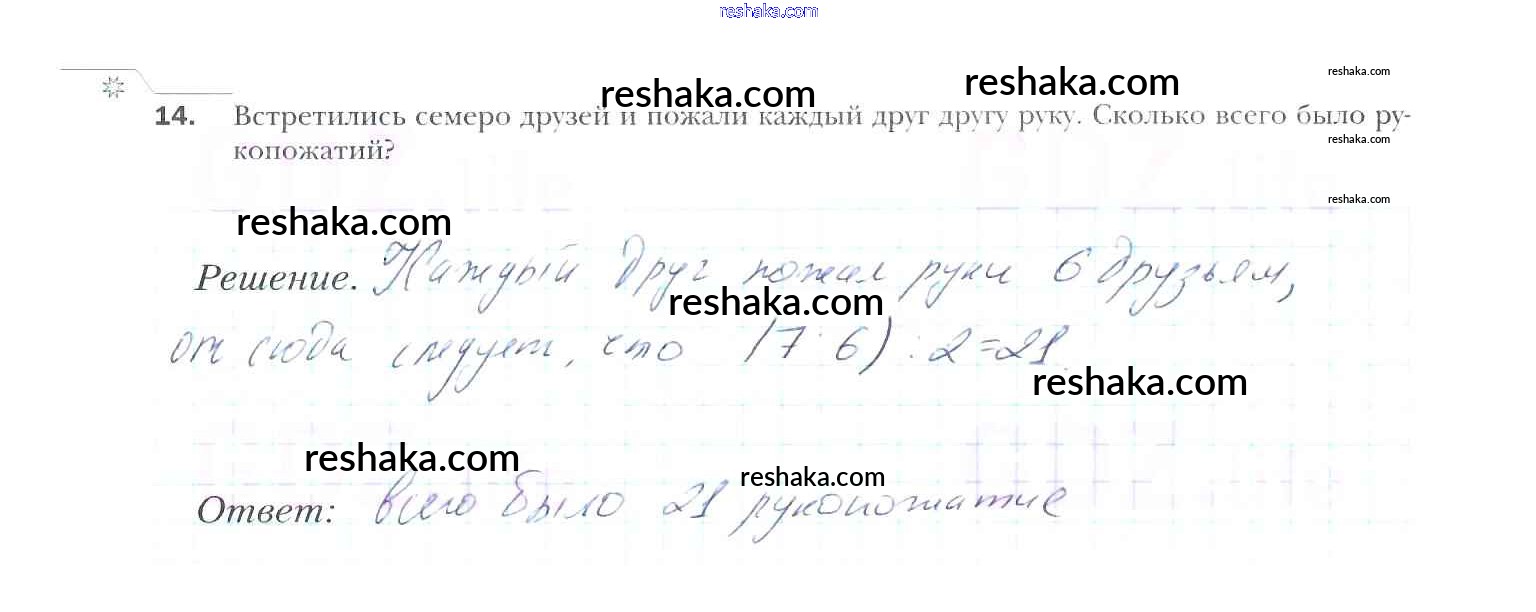 reshaka.com
reshaka.com reshaka.com reshaka.com
14. Встретились семеро друзей и пожали каждый друг другу руку. Сколько всего было ру-
reshaka.com
копожатий?
reshaka.com
reshaka.com
Решение. Каждый друг пожал руки 6 друзьям,
reshaka.com
от сюда следует, что (7·6):2=21
reshaka.com
reshaka.com
reshaka.com
Ответ: всего было 21 рукопожатие